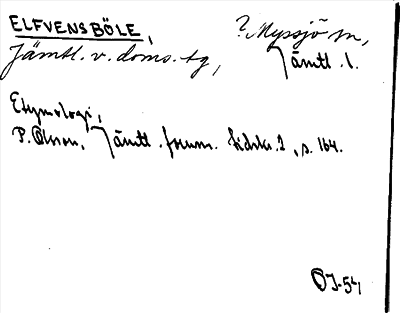 ELFVENSBÖLE, ? Myssjö sn,
Jämtl. v. doms. tg, Jämtl. l.
Etymologi,
P. Olsson, Jämtl. fornm. tidskr. 2, s. 164.
OJ-54